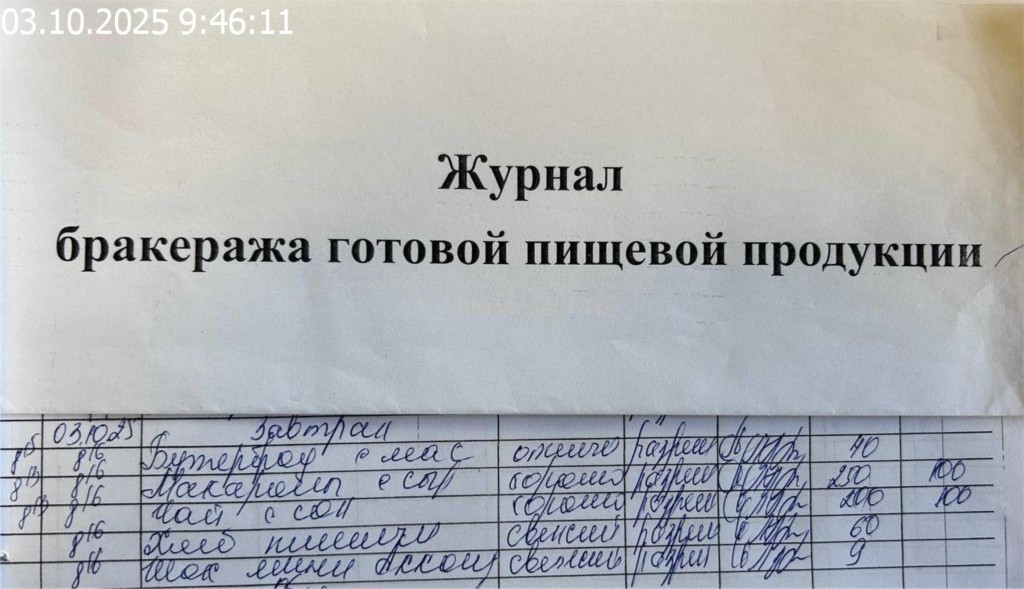 03.10.2025 9:46:11
Журнал
бракеража готовой пищевой продукции
03.10.25 Завтрак
8¹⁵ 8¹⁶ Бутерброд с мас отлично разреш 40
8¹³ 8¹⁶ Макароны с сыр хорошо разреш 250 100
8¹³ 8¹⁶ Чай с сах хорошо разреш 200 100
8¹⁶ Хлеб пшенич свежий разреш 60
8¹⁶ Шок мини свежий разреш 9